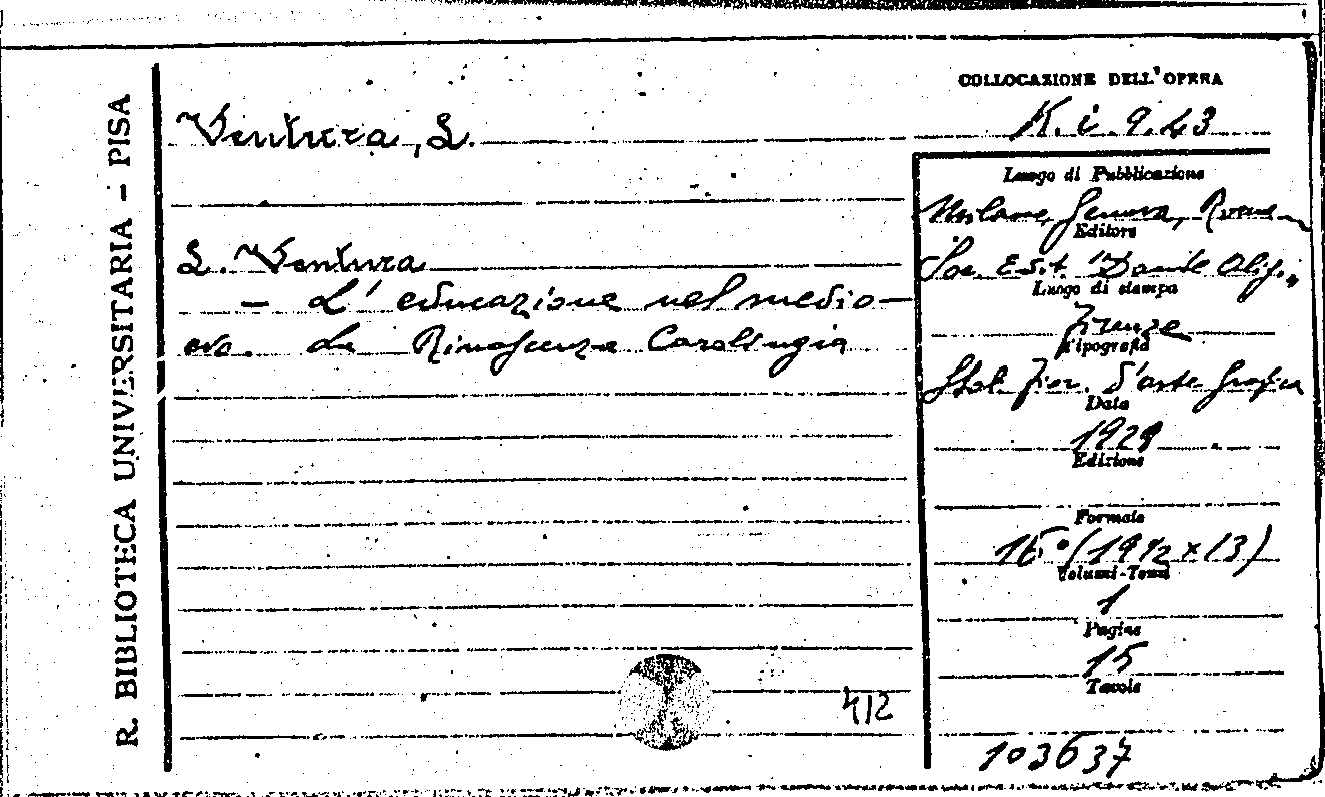 R. BIBLIOTECA UNIVERSITARIA - PISA
COLLOCAZIONE DELL'OPERA
K. i. 9. 43
Ventura, L.
Luogo di Pubblicazione
Milano, Genova, Roma
Editore
L. Ventura
Soc. Edit. "Dante Alig.„
— L'educazione nel medio-
Luogo di stampa
Firenze
evo. La Rinascenza Carolingia
Tipografia
Stab. Fior. d'arte grafica
Data
1929
Edizione
Formato
16° (19 1/2 x 13)
Volumi-Tomi
1
Pagine
15
Tavole
412
103637